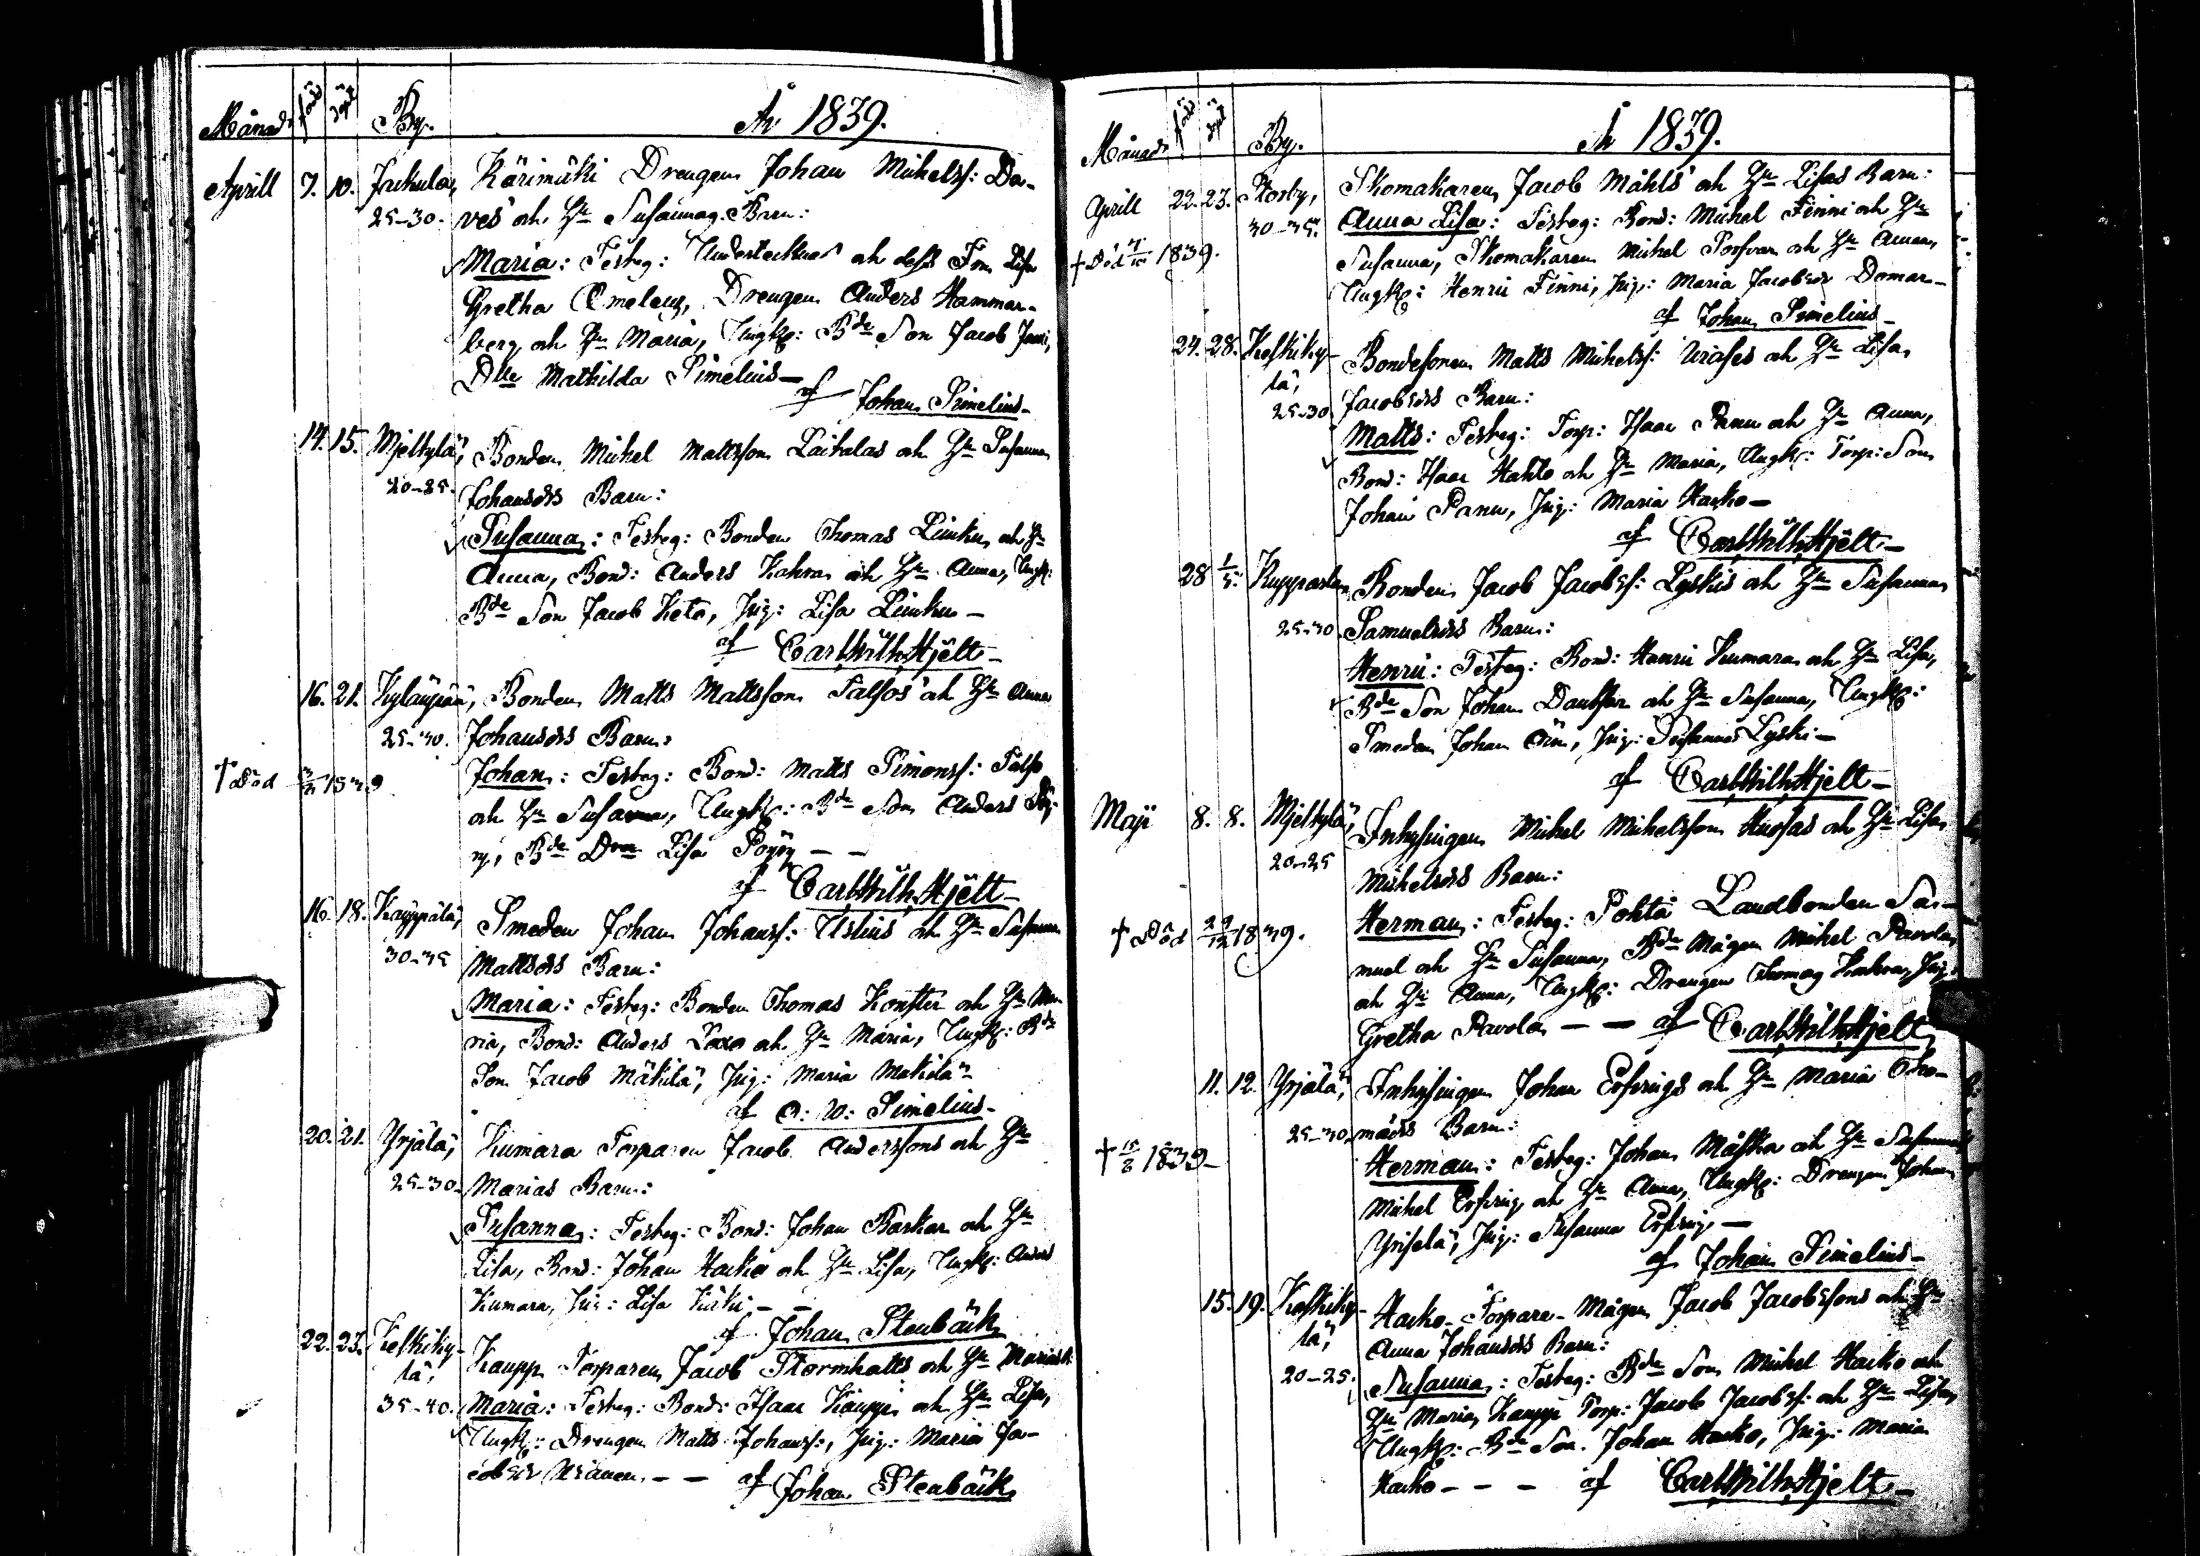 Månad. född döpt By. År 1839.
Aprill 7. 10. Jackula, Kärimäki Drengen Johan Michelss: Da-
25-30. ves och H:u Susannas Barn:
Maria: Testeg: Undertecknad och dess Fru Lisa
Gretha Emeleus, Drengen Anders Hammar-
berg och H:u Maria, Ungk: B:de Son Jacob
D:lle Mathilda Simelius-
af Johan Simelius-
14. 15. Mjelkylä, Bonden Michel Mattsson Laitalas och H:u Susanna
20-25. Johansdrs Barn:
Susanna: Testeg: Bonden Thomas Linku, och H:u
Anna, Bond: Anders Kahra och H:u Anna, Ungk:
B:de Son Jacob Keto, Pig: Lisa Linku-
af Carl Wilh. Hjelt-
16. 21. Kyläupää, Bonden Matts Mattsson Salfos och H:u Anna
25-30. Johansdrs Barn:
† Död 1839 Johan: Testeg: Bond: Matts Simonss: Salfo
och H:u Susanna, Ungk: B:de Son Anders Pöy-
ry, B:de Dren Lisa Pöyry - -
af Carl Wilh. Hjelt-
16. 18. Kauppila, Smeden Johan Johanss: Uslius och H:u Susanna
30-35 Mattsdrs Barn:
Maria: Testeg: Bonden Thomas Konsteri och H:u Ma-
ria, Bond: Anders Laxo och H:u Maria, Ungk: B:de
Son Jacob Mäkilä, Pig: Maria Mäkilä-
af C: W: Simelius-
20. 21. Yrjälä, Kumara Torparen Jacob Anderssons och H:u
25-30- Marias Barn:
Susanna: Testeg: Bond: Johan Barkar och H:u
Lisa, Bond: Johan Harko och H:u Lisa, Ungk: Anders
Kumara, Pig: Lisa Käki - -
af Johan Stenbäck
22. 23. Keskiky- Kaupp. Torparen Jacob Stormhatts och H:u Marias B:
lä,
35-40. Maria: Testeg: Bond: Isaac Kauppi och H:u Lisa,
Ungk: Drengen Matts Johanss:, Pig: Maria Ja-
cobsdr - - af Johan Stenbäck
Månad. född döpt By. År 1839.
Aprill 22. 23. Storby, Skomakaren Jacob Måhls och H:u Lisas Barn:
30-35. Anna Lisa: Testeg: Bond: Michel Finni och H:u
† Död 1839. Susanna, Skomakaren Michel Forsvar och H:u Anna,
Ungk: Henric Finni, Pig: Maria Jacobsdr Domar-
af Johan Simelius-
24. 28. Keskiky- Bondesonen Matts Michelss: Uriases och H:u Lisa
lä,
25-30 Jacobsdrs Barn:
Matts: Testeg: Torp: Isaac Panu och H:u Anna,
Bond: Isaac Hahto och H:u Maria, Ungk: Torp: Son
Johan Panu, Pig: Maria Harko-
af Carl Wilh. Hjelt-
28 1/5. Kupparla, Bonden Jacob Jacobss: Lyskis och H:u Susanna
25-30 Samuelsdrs Barn:
Henric: Testeg: Bond: Henric Kumara och H:u Lisa,
B:de Son Johan Danskar och H:u Susanna, Ungk:
Smeden Johan, Pig: Susanna Lyski-
af Carl Wilh. Hjelt-
Maji 8. 8. Mjelkylä, Inhysingen Michel Michelsson Huosas och H:u Lisa
20-25 Michelsdrs Barn:
† Död 29/12 1839. Herman: Testeg: Pohto Landbonden Sa-
muel och H:u Susanna, B:de Mågen Michel Pavola
och H:u Anna, Ungk: Drengen Thomas Kahra, Pig:
Gretha Pavola - - af Carl Wilh. Hjelt
11. 12. Yrjälä, Inhysingen Johan Erfvings och H:u Maria Tho-
25-30 mädrs Barn:
† 15/8 1839- Herman: Testeg: Johan Måska och H:u Susanna
Michel Erfving och H:u Anna, Ungk: Drengen Johan
Yrjälä, Pig: Susanna Erfving-
af Johan Simelius-
15. 19. Keskiky- Harko-Torpare-Mågen Jacob Jacobssons och H:u
lä, Anna Johansdrs Barn:
20-25. Susanna: Testeg: B:de Son Michel Harko och
H:u Maria, Kauppi Torp: Jacob Jacobss: och H:u Lisa,
Ungk: B:de Son Johan Harko, Pig: Maria
Harko - - - af Carl Wilh. Hjelt-